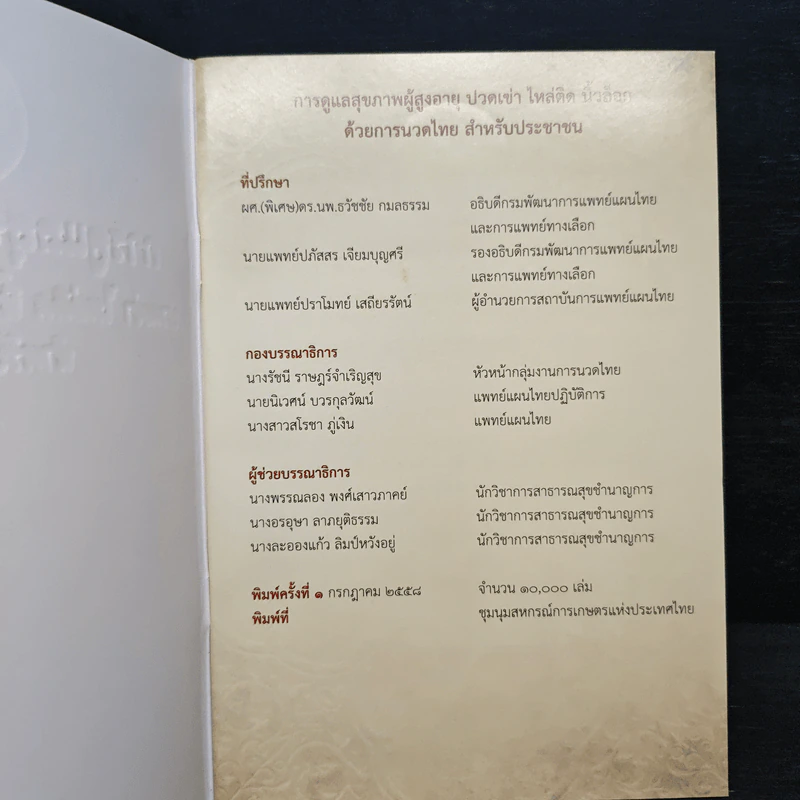 การดูแลสุขภาพผู้สูงอายุ ปวดเข่า ไหล่ติด นิ้วล็อก
ด้วยการนวดไทย สำหรับประชาชน
ที่ปรึกษา
ผศ.(พิเศษ)ดร.นพ.ธวัชชัย กมลธรรม อธิบดีกรมพัฒนาการแพทย์แผนไทย
และการแพทย์ทางเลือก
นายแพทย์ปภัสสร เจียมบุญศรี รองอธิบดีกรมพัฒนาการแพทย์แผนไทย
และการแพทย์ทางเลือก
นายแพทย์ปราโมทย์ เสถียรรัตน์ ผู้อำนวยการสถาบันการแพทย์แผนไทย
กองบรรณาธิการ
นางรัชนี ราษฎร์จำเริญสุข หัวหน้ากลุ่มงานการนวดไทย
นายนิเวศน์ บวรกุลวัฒน์ แพทย์แผนไทยปฏิบัติการ
นางสาวสโรชา ภู่เงิน แพทย์แผนไทย
ผู้ช่วยบรรณาธิการ
นางพรรณลอง พงศ์เสาวภาคย์ นักวิชาการสาธารณสุขชำนาญการ
นางอรอุษา ลาภยุติธรรม นักวิชาการสาธารณสุขชำนาญการ
นางละอองแก้ว ลิมป์หวังอยู่ นักวิชาการสาธารณสุขชำนาญการ
พิมพ์ครั้งที่ ๑ กรกฎาคม ๒๕๕๘ จำนวน ๑๐,๐๐๐ เล่ม
พิมพ์ที่ ชุมนุมสหกรณ์การเกษตรแห่งประเทศไทย